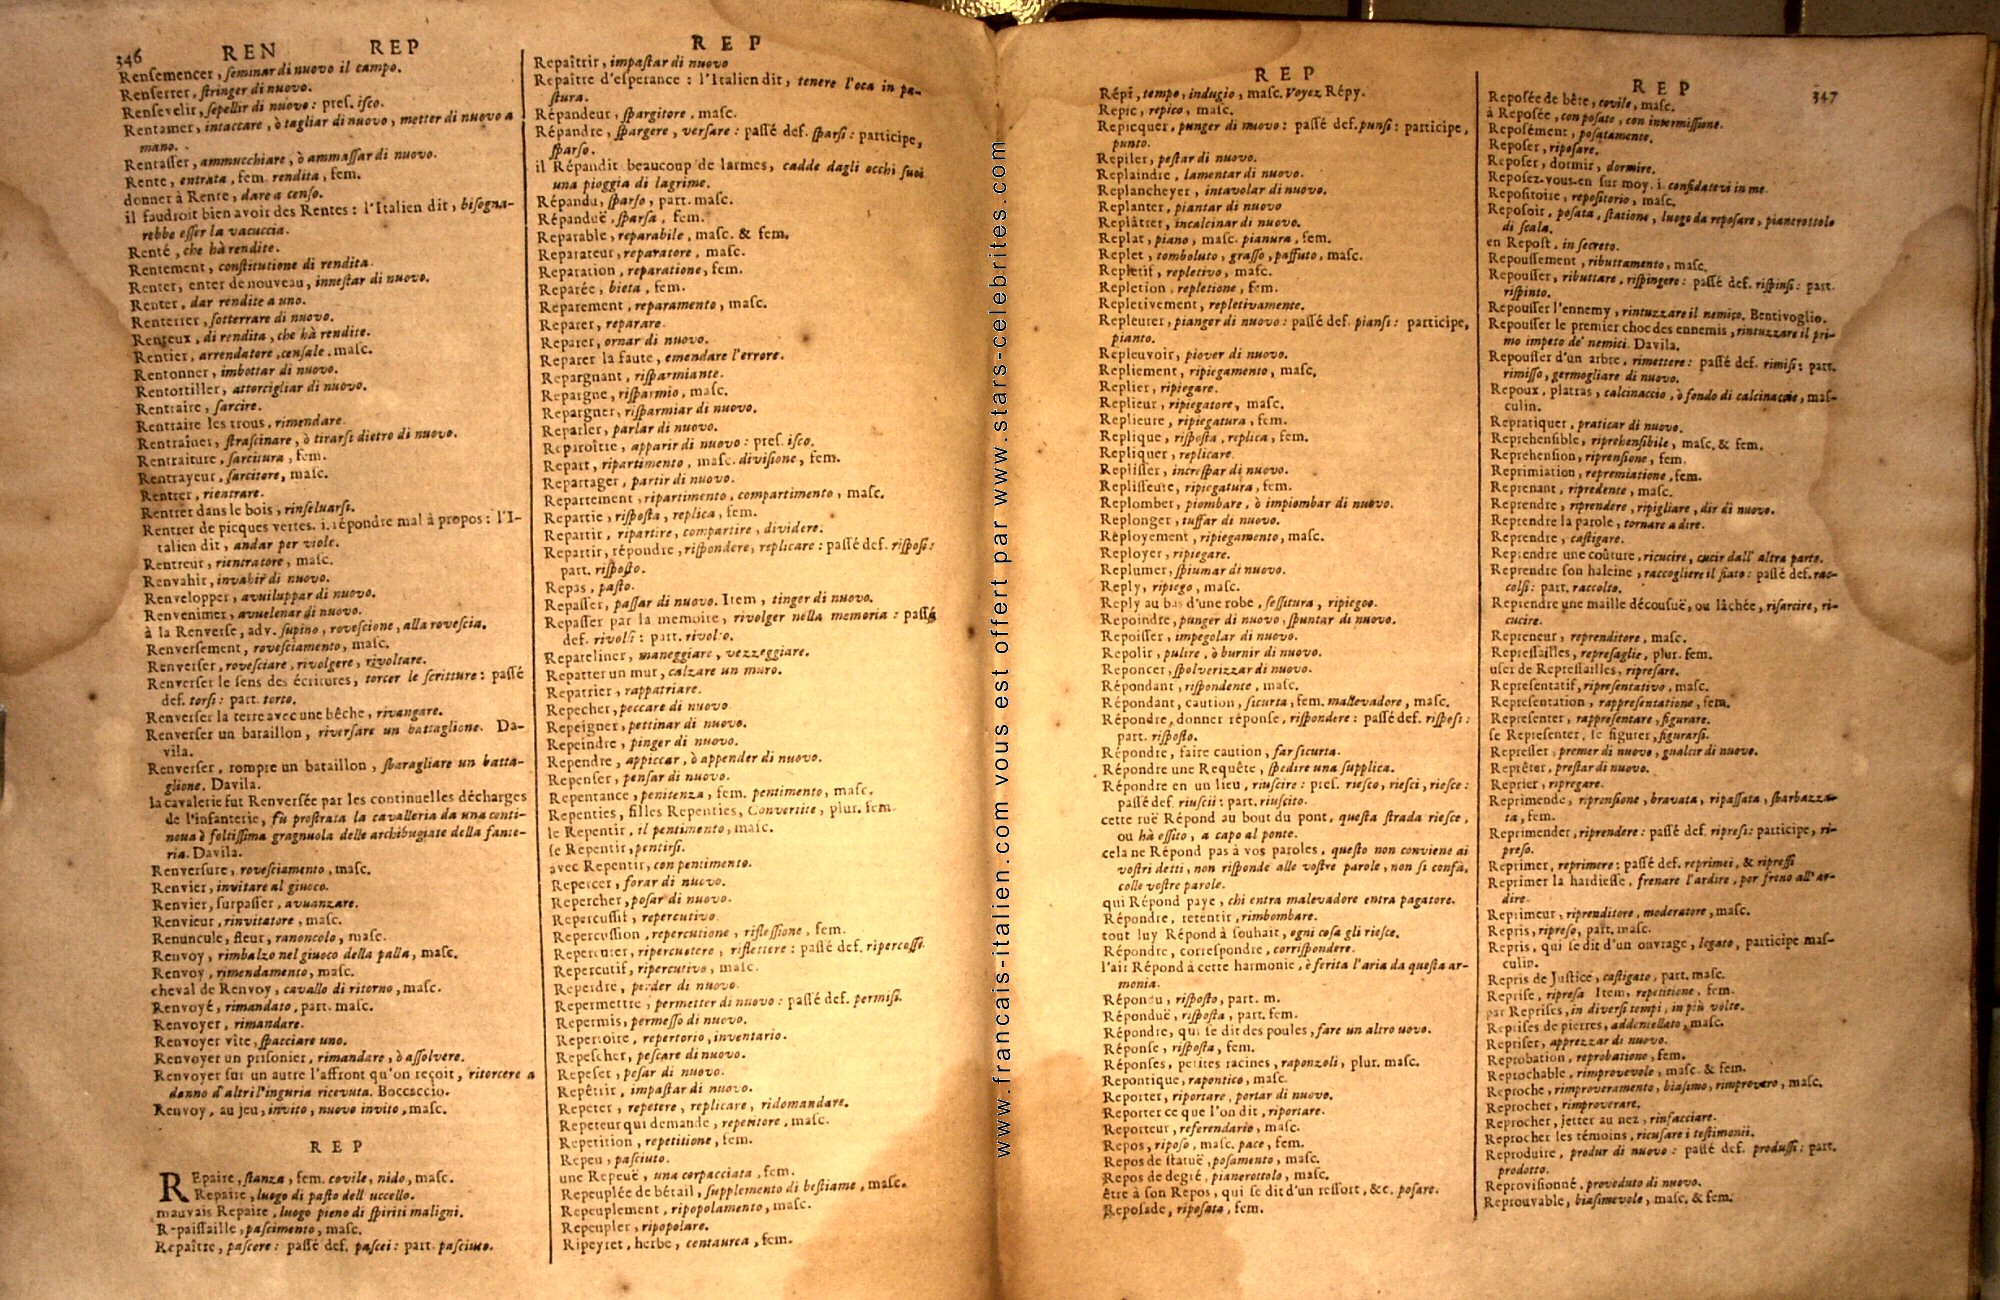 346 REN REP
Rensemencer, seminar di nuovo il campo.
Renserrer, stringer di nuovo.
Rensevelir, sepellir di nuovo: pres. isco.
Rentamer, intaccare, ò tagliar di nuovo, metter di nuovo a
mano.
Rentasser, ammucchiare, ò ammassar di nuovo.
Rente, entrata, fem. rendita, fem.
donner à Rente, dare a censo.
il faudroit bien avoir des Rentes: l'Italien dit, bisogna-
rebbe esser la vacuccia.
Renté, che hà rendite.
Rentement, constitutione di rendita.
Renter, enter de nouveau, innestar di nuovo.
Renter, dar rendite a uno.
Renterrer, sotterrare di nuovo.
Renteux, di rendita, che hà rendite.
Rentier, arrendatore, censale, masc.
Rentonner, imbottar di nuovo.
Rentortiller, attorcigliar di nuovo.
Rentraire, sarcire.
Rentraire les trous, rimendare.
Rentraîner, strascinare, ò tirarsi dietro di nuovo.
Rentraiture, sarcitura, fem.
Rentrayeur, sarcitore, masc.
Rentrer, rientrare.
Rentrer dans le bois, rinseluarsi.
Rentrer de picques vertes. i. répondre mal à propos: l'I-
talien dit, andar per viole.
Rentreur, rientratore, masc.
Renvahir, invahir di nuovo.
Renvelopper, avuiluppar di nuovo.
Renvenimer, avuelenar di nuovo.
à la Renverse, adv. supino, rovescione, alla rovescia.
Renversement, rovesciamento, masc.
Renverser, rovesciare, rivolgere, rivoltare.
Renverser le sens des écritures, torcer le scritture: passé
def. torsi: part. torto.
Renverser la terre avec une bêche, rivangare.
Renverser un bataillon, riversare un battaglione. Da-
vila.
Renverser, rompre un bataillon, sbaragliare un batta-
glione. Davila.
la cavalerie fut Renversée par les continuelles décharges
de l'infanterie, fù prostrata la cavalleria da una conti-
noua è foltissima gragnuola delle archibugiate della fante-
ria. Davila.
Renversure, rovesciamento, masc.
Renvier, invitare al giuoco.
Renvier, surpasser, avuanzare.
Renvieur, rinvitatore, masc.
Renuncule, fleur, ranoncolo, masc.
Renvoy, rimbalzo nel giuoco della palla, masc.
Renvoy, rimendamento, masc.
cheval de Renvoy, cavallo di ritorno, masc.
Renvoyé, rimandato, part. masc.
Renvoyer, rimandare.
Renvoyer vîte, spacciare uno.
Renvoyer un prisonier, rimandare, ò assolvere.
Renvoyer sur un autre l'affront qu'on reçoit, ritorcere a
danno d'altri l'inguria ricevuta. Boccaccio.
Renvoy, au jeu, invito, nuovo invito, masc.
REP
REpaire, stanza, fem. covile, nido, masc.
Repaire, luogo di pasto dell uccello.
mauvais Repaire, luogo pieno di spiriti maligni.
R-paissaille, pascimento, masc.
Repaître, pascere: passé def. pascei: part. pasciuto.
REP
Repaîtrir, impastar di nuovo
Repaître d'esperance: l'Italien dit, tenere l'oca in pa-
stura.
Répandeur, spargitore, masc.
Répandre, spargere, versare: passé def. sparsi: participe,
sparso.
il Répandit beaucoup de larmes, cadde dagli occhi suoi
una pioggia di lagrime.
Répandu, sparso, part. masc.
Répanduë, sparsa, fem.
Reparable, reparabile, masc. & fem.
Reparateur, reparatore, masc.
Reparation, reparatione, fem.
Reparée, bieta, fem.
Reparement, reparamento, masc.
Reparer, reparare.
Reparer, ornar di nuovo.
Reparer la faute, emendare l'errore.
Repargnant, risparmiante.
Repargne, risparmio, masc.
Repargner, risparmiar di nuovo.
Reparler, parlar di nuovo.
Reparoître, apparir di nuovo: pres. isco.
Repart, ripartimento, masc. divisione, fem.
Repartager, partir di nuovo.
Repartement, ripartimento, compartimento, masc.
Repartie, risposta, replica, fem.
Repartir, ripartire, compartire, dividere.
Repartir, répondre, rispondere, replicare: passé def. risposi:
part. risposto.
Repas, pasto.
Repasser, passar di nuovo. Item, tinger di nuovo.
Repasser par la memoire, rivolger nella memoria: passé
def. rivolsi: part. rivolto.
Repateliner, maneggiare, vezzeggiare.
Repatter un mur, calzare un muro.
Repatrier, rappatriare.
Repecher, peccare di nuovo
Repeigner, pettinar di nuovo.
Repeindre, pinger di nuovo.
Rependre, appiccar, ò appender di nuovo.
Repenser, pensar di nuovo.
Repentance, penitenza, fem. pentimento, masc.
Repenties, filles Repenties, Convertite, plur. fem.
le Repentir, il pentimento, masc.
se Repentir, pentirsi.
avec Repentir, con pentimento.
Repercer, forar di nuovo.
Repercher, posar di nuovo.
Repercussif, repercutivo
Repercussion, repercutione, riflessione, fem.
Repercuter, ripercuotere, riflettere: passé def. ripercossi.
Repercutif, ripercutivo, masc.
Reperdre, perder di nuovo.
Repermettre, permetter di nuovo: passé def. permisi.
Repermis, permesso di nuovo.
Repertoire, repertorio, inventario.
Repescher, pescare di nuovo.
Repeser, pesar di nuovo.
Repêtrir, impastar di nuovo.
Repeter, repetere, replicare, ridomandare.
Repeteur qui demande, repetitore, masc.
Repetition, repetitione, fem.
Repeu, pasciuto.
une Repeuë, una corpacciata, fem.
Repeuplée de bétail, supplemento di bestiame, masc.
Repeuplement, ripopolamento, masc.
Repeupler, ripopolare.
Ripeyret, herbe, centaurea, fem.
www.francais-italien.com vous est offert par www.stars-celebrites.com
REP
Répi, tempo, indugio, masc. Voyez Répy.
Repic, repico, masc.
Repicquer, punger di nuovo: passé def. punsi: participe,
punto.
Repiler, pestar di nuovo.
Replaindre, lamentar di nuovo.
Replancheyer, intavolar di nuovo.
Replanter, piantar di nuovo
Replâtrer, incalcinar di nuovo.
Replat, piano, masc. pianura, fem.
Replet, tomboluto, grasso, passuto, masc.
Repletif, repletivo, masc.
Repletion, repletione, fem.
Repletivement, repletivamente.
Repleurer, pianger di nuovo: passé def. piansi: participe,
pianto.
Repleuvoir, piover di nuovo.
Repliement, ripiegamento, masc.
Replier, ripiegare.
Replieur, ripiegatore, masc.
Replieure, ripiegatura, fem.
Replique, risposta, replica, fem.
Repliquer, replicare.
Replisser, increspar di nuovo.
Replisseure, ripiegatura, fem.
Replomber, piombare, ò impiombar di nuovo.
Replonger, tuffar di nuovo.
Réployement, ripiegamento, masc.
Reployer, ripiegare.
Replumer, spiumar di nuovo.
Reply, ripiego, masc.
Reply au bas d'une robe, sessitura, ripiegoo.
Repoindre, punger di nuovo, spuntar di nuovo.
Repoisser, impegolar di nuovo.
Repolir, pulire, ò burnir di nuovo.
Reponcer, spolverizzar di nuovo.
Répondant, rispondente, masc.
Répondant, caution, sicurta, fem. mallevadore, masc.
Répondre, donner réponse, rispondere: passé def. risposi:
part. risposto.
Répondre, faire caution, far sicurta.
Répondre une Requête, spedire una supplica.
Répondre en un lieu, riuscire: pres. riesco, riesci, riesce:
passé def. riuscii: part. riuscito.
cette ruë Répond au bout du pont, questa strada riesce,
ou hà essito, a capo al ponte.
cela ne Répond pas à vos paroles, questo non conviene ai
vostri detti, non risponde alle vostre parole, non si confà,
colle vostre parole.
qui Répond paye, chi entra malevadore entra pagatore.
Répondre, retentir, rimbombare.
tout luy Répond à souhait, ogni cosa gli riesce.
Répondre, correspondre, corrispondere.
l'air Répond à cette harmonie, è ferita l'aria da questa ar-
monia.
Répondu, risposto, part. m.
Réponduë, risposta, part. fem.
Répondre, qui se dit des poules, fare un altro uovo.
Réponse, risposta, fem.
Réponses, petites racines, raponzoli, plur. masc.
Repontique, rapontico, masc.
Reporter, riportare, portar di nuovo.
Reporter ce que l'on dit, riportare.
Reporteur, referendario, masc.
Repos, riposo, masc. pace, fem.
Repos de statuë, posamento, masc.
Repos de degré, pianerottolo, masc.
être à son Repos, qui se dit d'un ressort, &c. posare.
Reposade, riposata, fem.
REP 347
Reposée de bête, covile, masc.
à Reposée, con posato, con intermissione.
Reposément, posatamente.
Reposer, riposare.
Reposer, dormir, dormire.
Reposez-vous-en sur moy. i. confidatevi in me.
Repositoire, repositorio, masc.
Reposoir, posata, statione, luogo da reposare, pianerottolo
di scala.
en Repost, in secreto.
Repoussement, ributtamento, masc.
Repousser, ributtare, rispingere: passé def. rispinsi: part.
rispinto.
Repousser l'ennemy, rintuzzare il nemico. Bentivoglio.
Repousser le premier choc des ennemis, rintuzzare il pri-
mo impeto de' nemici. Davila.
Repousser d'un arbre, rimettere: passé def. rimisi: part.
rimisso, germogliare di nuovo.
Repoux, platras, calcinaccio, ò fondo di calcinaccio, mas-
culin.
Repratiquer, praticar di nuovo.
Reprehensible, riprehensibile, masc. & fem.
Reprehension, riprensione, fem.
Reprimiation, repremiatione, fem.
Reprenant, ripredente, masc.
Reprendre, riprendere, ripigliare, dir di nuovo.
Reprendre la parole, tornare a dire.
Reprendre, castigare.
Reprendre une coûture, ricucire, cucir dall' altra parte.
Reprendre son haleine, raccogliere il fiato: passé def. rac-
colsi: part. raccolto.
Reprendre une maille décousuë, ou lâchée, risarcire, ri-
cucire.
Repreneur, reprenditore, masc.
Repressailles, represaglie, plur. fem.
user de Repressailles, ripresare.
Representatif, ripresentativo, masc.
Representation, rappresentatione, fem.
Representer, rappresentare, figurare.
se Representer, se figurer, figurarsi.
Represser, premer di nuovo, gualcir di nuovo.
Reprêter, prestar di nuovo.
Reprier, ripregare.
Reprimende, riprensione, bravata, ripassata, sbarbazza-
ta, fem.
Reprimender, riprendere: passé def. ripresi: participe, ri-
preso.
Reprimer, reprimere: passé def. reprimei, & ripressi
Reprimer la hardiesse, frenare l'ardire, por freno all' ar-
dire.
Reprimeur, riprenditore, moderatore, masc.
Repris, ripreso, part. masc.
Repris, qui se dit d'un ouvrage, legato, participe mas-
culin.
Repris de Justice, castigato, part. masc.
Reprise, ripresa Item, repetitione, fem.
par Reprises, in diversi tempi, in più volte.
Reprises de pierres, addentellato, masc.
Repriser, apprezzar di nuovo.
Reprobation, reprobatione, fem.
Reprochable, rimprovevole, masc. & fem.
Reproche, rimproveramento, biasimo, rimprovero, masc.
Reprocher, rimproverare.
Reprocher, jetter au nez, rinfacciare.
Reprocher les témoins, ricusare i testimonii.
Reproduire, produr di nuovo: passé def. produssi: part.
prodotto.
Reprovisionné, proveduto di nuovo.
Reprouvable, biasimevole, masc. & fem.